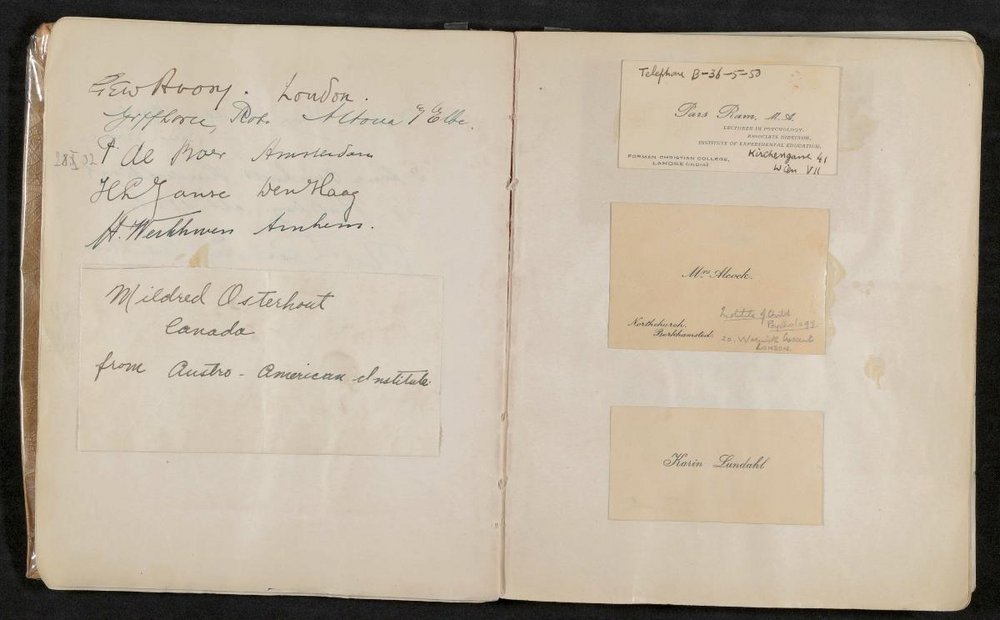 London.
Altona
P de Boer Amsterdam
Den Haag
Arnhem.
Mildred Osterhout
Canada
from Austro-American Institute
Telephone B-36-5-50
Pars Ram, M.A.
LECTURER IN PSYCHOLOGY,
ASSOCIATE DIRECTOR,
INSTITUTE OF EXPERIMENTAL EDUCATION,
FORMAN CHRISTIAN COLLEGE,
LAHORE (INDIA)
Kirchengasse 41
Wien VII
Mrs Alcock.
Northchurch,
Berkhamsted.
Institute of Child
Psychology
20, Warwick Crescent
London.
Karin Lundahl